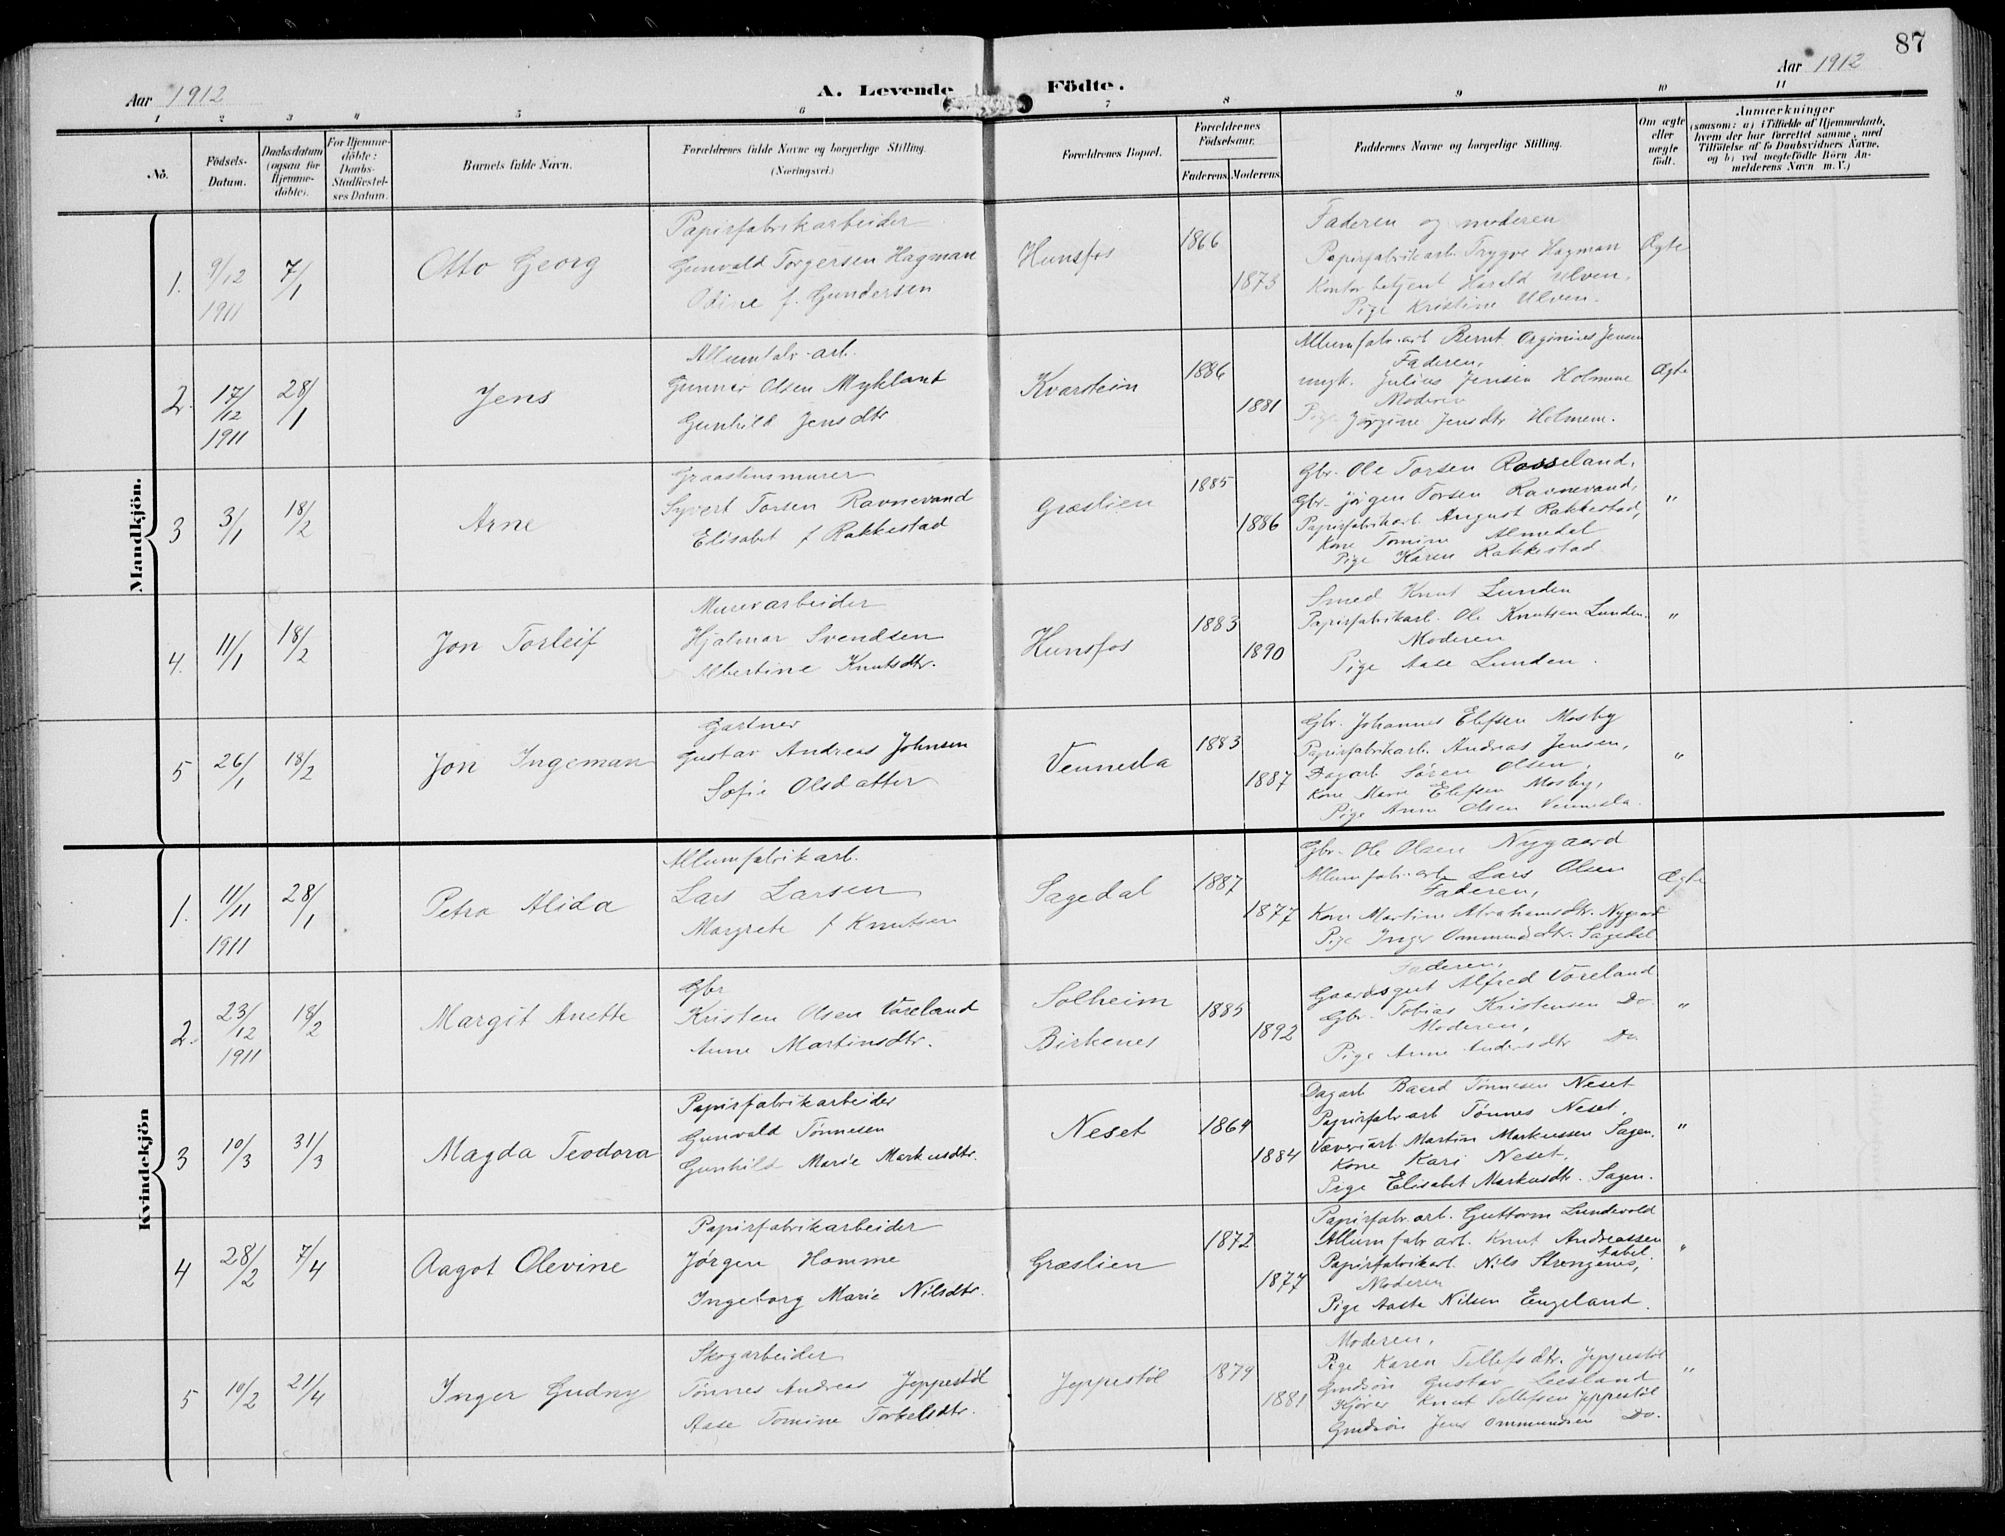 87
Aar 1912
A. Levende Födte.
Aar 1912
1 2 3 4 5 6 7 8 9 10 11
No.
Födsels-Datum.
Daabsdatum (ogsaa for Hjemme-döbte).
For Hjemme-döbte: Daabs-Stadfæstel-ses Datum.
Barnets fulde Navn.
Forældrenes fulde Navne og borgerlige Stilling. (Næringsvei.)
Forældrenes Bopæl.
Forældrenes Födselsaar.
Faderens. Moderens.
Faddernes Navne og borgerlige Stilling.
Om ægte eller uægte födt.
Anmærkninger
(saasom: a) i Tilfælde af Hjemmedaab, hvem der har forrettet samme, med Tilföielse af to Daabsvidners Navne, og b) ved uægtefödte Börn An-melderens Navn m. V.)
Mandkjön.
1. 9/12 1911 7/1 Otto Georg
Papirfabrikarbeider
Gunvald Torgersen Hagman
Odine f. Gundersen
Hunsfos 1866 1873
Faderen og moderen
Papirfabrikarb. Trygve Hagman
Kontorbetjent Harald Ulven.
Pige Kristine Ulven.
Ægte
2. 17/12 1911 28/1 Jens
Allumfabr. arb.
Gunnar Olsen Mykland
Gunhild Jensdtr
Kvarstein 1886 1881
Allumfabr. arb Bernt Jensen
Faderen,
ungk. Julius Jensen Holmene
Moderen
Pige Jørgine Jensdtr Holmem.
Ægte
3 3/1 18/2 Arne
Graastensmurer
Syvert Torsen Ravnevand
Elisabet f Rakkestad
Græslien 1885 1886
Gbr. Ole Torsen Rosseland,
Gbr. Jörgen Torsen Ravnevand,
Papirfabrikarb. August Rakkestad,
Kone Tomine Almedal
Pige Karen Rakkestad
"
4. 11/1 18/2 Jon Torleif
Murerarbeider
Hjalmar Svendsen
Albertine Knutsdtr.
Hunsfos 1883 1890
Smed Knut Lunden
Papirfabrikarb. Ole Knutsen Lunden.
Moderen
Pige Aase Lunden.
"
5 26/1 18/2 Jon Ingeman
Gartner
Gustav Andreas Johnsen
Sofie Olsdatter
Vennesla 1883 1887
Gbr. Johannes Elefsen Mosby
Papirfabrikarb. Andreas Jensen,
Dagarb Sören Olsen,
Kone Marie Elefsen Mosby,
Pige Anne Olsen Vennesla.
"
Kvindekjön
1. 11/11 1911 28/1 Petra Alida
Allumfabrikarb.
Lars Larsen
Margrete f Knutsen
Sagedal 1887 1877
Gbr. Ole Olsen Nygaard
Allumfabr. arb Lars Olsen
Faderen,
Kone Martine Abrahamsdtr. Nygaard
Pige Inger Ommundsdtr. Sagedal
Ægte
2. 23/12 1911 18/2 Margit Anette
Gbr
Kristen Olsen Vareland
Anne Martinsdtr.
Solheim
Birkenes
1885 1892
Faderen,
Gaardsgut Alfred Vareland
Gbr. Tobias Kristensen Do.
Moderen,
Pige Anne Andersdtr Do.
"
3 10/3 31/3 Magda Teodora
Papirfabrikarbeider
Gunvald Tönnesen
Gunhild Marie Markusdtr.
Neset 1864 1884
Dagarb Baard Tönnesen Neset
Papirfabr arb Tönnes Neset,
Væveriarb. Martin Markussen Sagen.
Kone Kari Neset,
Pige Elisabet Markusdtr. Sagen.
"
4 28/2 7/4 Aagot Olevine
Papirfabrikarbeider
Jørgen Homme
Ingeborg Marie Nilsdtr.
Græslien 1872 1877
Papirfabr. arb. Guttorm Lundevold
Allumfabr arb. Knut Andreassen
Papirfabrikarb. Nils Strengenes,
Moderen
Pige Aasta Nilsen Engeland.
"
5 10/2 21/4 Inger Gudny
Skogarbeider
Tønnes Andreas Jeppestöl
Aase Tomine Torkelsdtr.
Jeppestöl 1879 1881
Moderen,
Pige Karen Tellefsdtr. Jeppestöl
Grndsön Gustav
Kjører Knut Tellefsen Jeppestöl
Grndsön Jens Ommundsen Do.
"